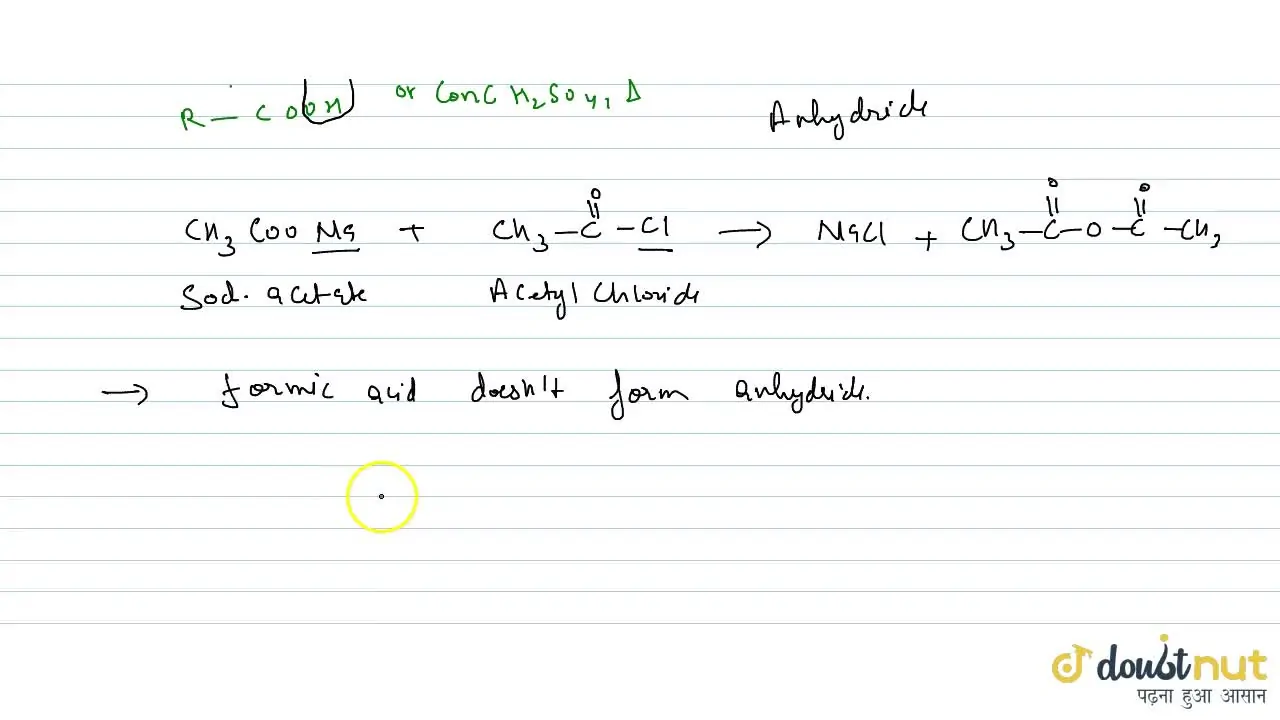 R — COOH or Conc H2SO4, Δ Anhydride
O O O
CH3COONa + CH3—C—Cl → NaCl + CH3—C—O—C—CH3
Sod. acetate Acetyl Chloride
→ formic acid doesn't form anhydride.
doubtnut
पढ़ना हुआ आसान